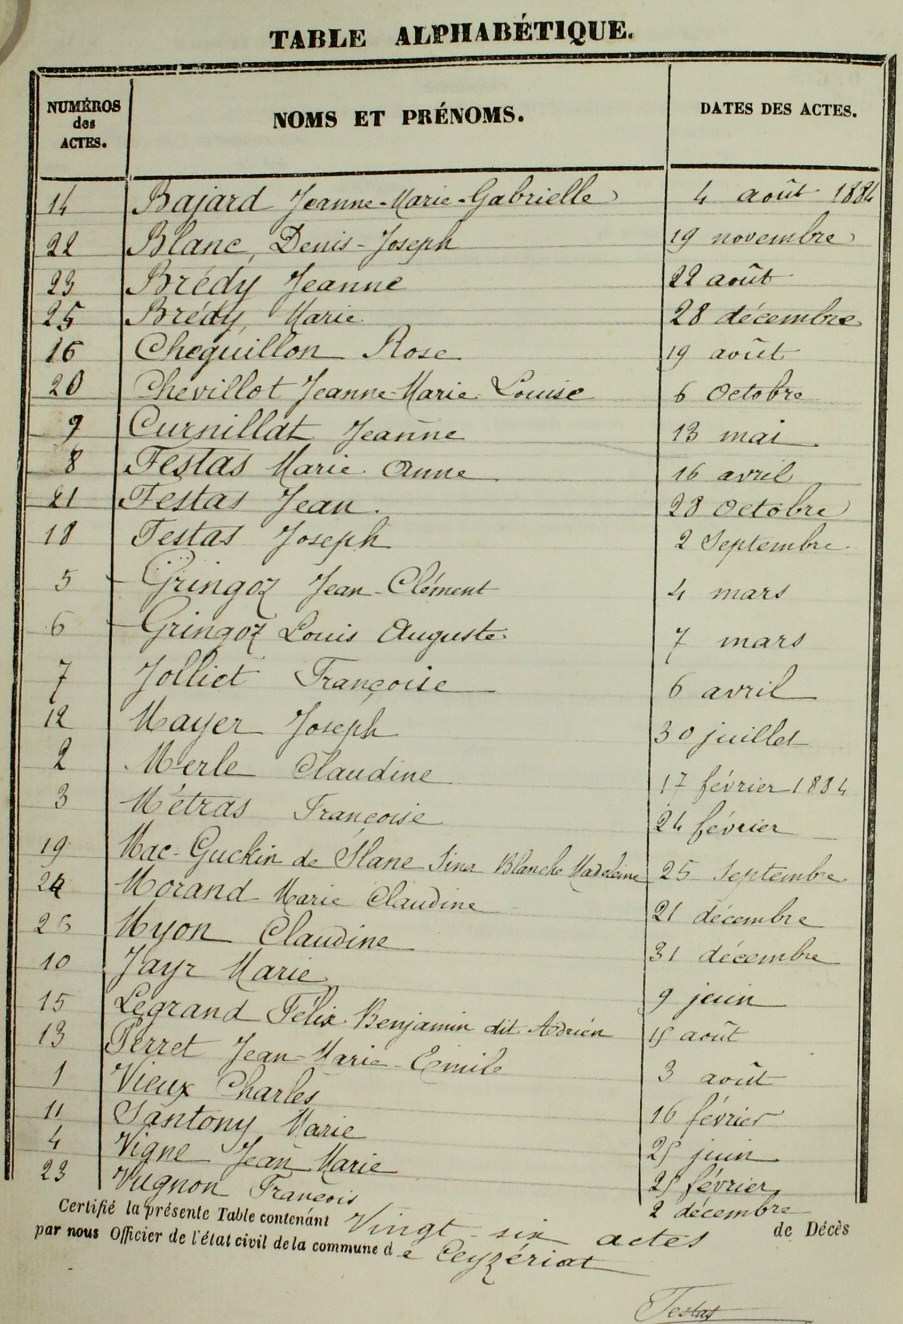 TABLE ALPHABÉTIQUE.
NUMÉROS des ACTES. NOMS ET PRÉNOMS. DATES DES ACTES.
14 Bajard Jeanne-Marie-Gabrielle 4 août 1884
22 Blanc, Denis-Joseph 19 novembre
23 Brédy Jeanne 22 août
25 Brédy, Marie 28 décembre
16 Cheguillon Rose 19 août
20 Chevillot Jeanne-Marie Louise 6 Octobre
9 Curnillat Jeanne 13 mai
8 Festas Marie Anne 16 avril
21 Festas Jean 28 Octobre
18 Festas Joseph 2 Septembre
5 Gringoz Jean-Clément 4 mars
6 Gringoz Louis Auguste 7 mars
7 Jolliet Françoise 6 avril
12 Mayer Joseph 30 juillet
2 Merle Claudine 17 février 1884
3 Métras Françoise 24 février
19 Mac-Guckin de Slane Blanche Madeleine 25 septembre
24 Morand Marie Claudine 21 décembre
26 Myon Claudine 31 décembre
10 Jayr Marie 9 juin
15 Legrand Félix Benjamin dit Adrien 15 août
13 Perret Jean-Marie-Emile 3 août
1 Vieux Charles 16 février
11 Santony Marie 25 juin
4 Vigne Jean Marie 25 février
23 Vugnon François 2 décembre
Certifié la présente Table contenant Vingt-six actes de Décès
par nous Officier de l'état civil de la commune de Ceyzériat
Festas